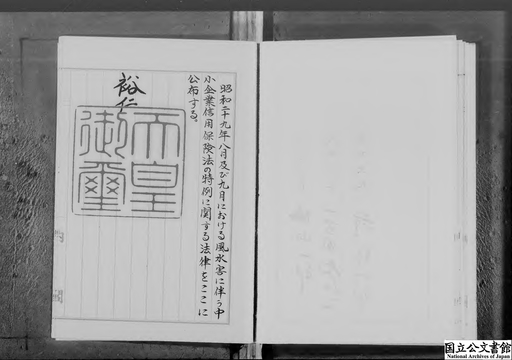 昭和二十九年八月及び九月における風水害に伴う中
小企業信用保険法の特例に関する法律をここに
公布する。
裕仁
天皇
御璽
国立公文書館
National Archives of Japan